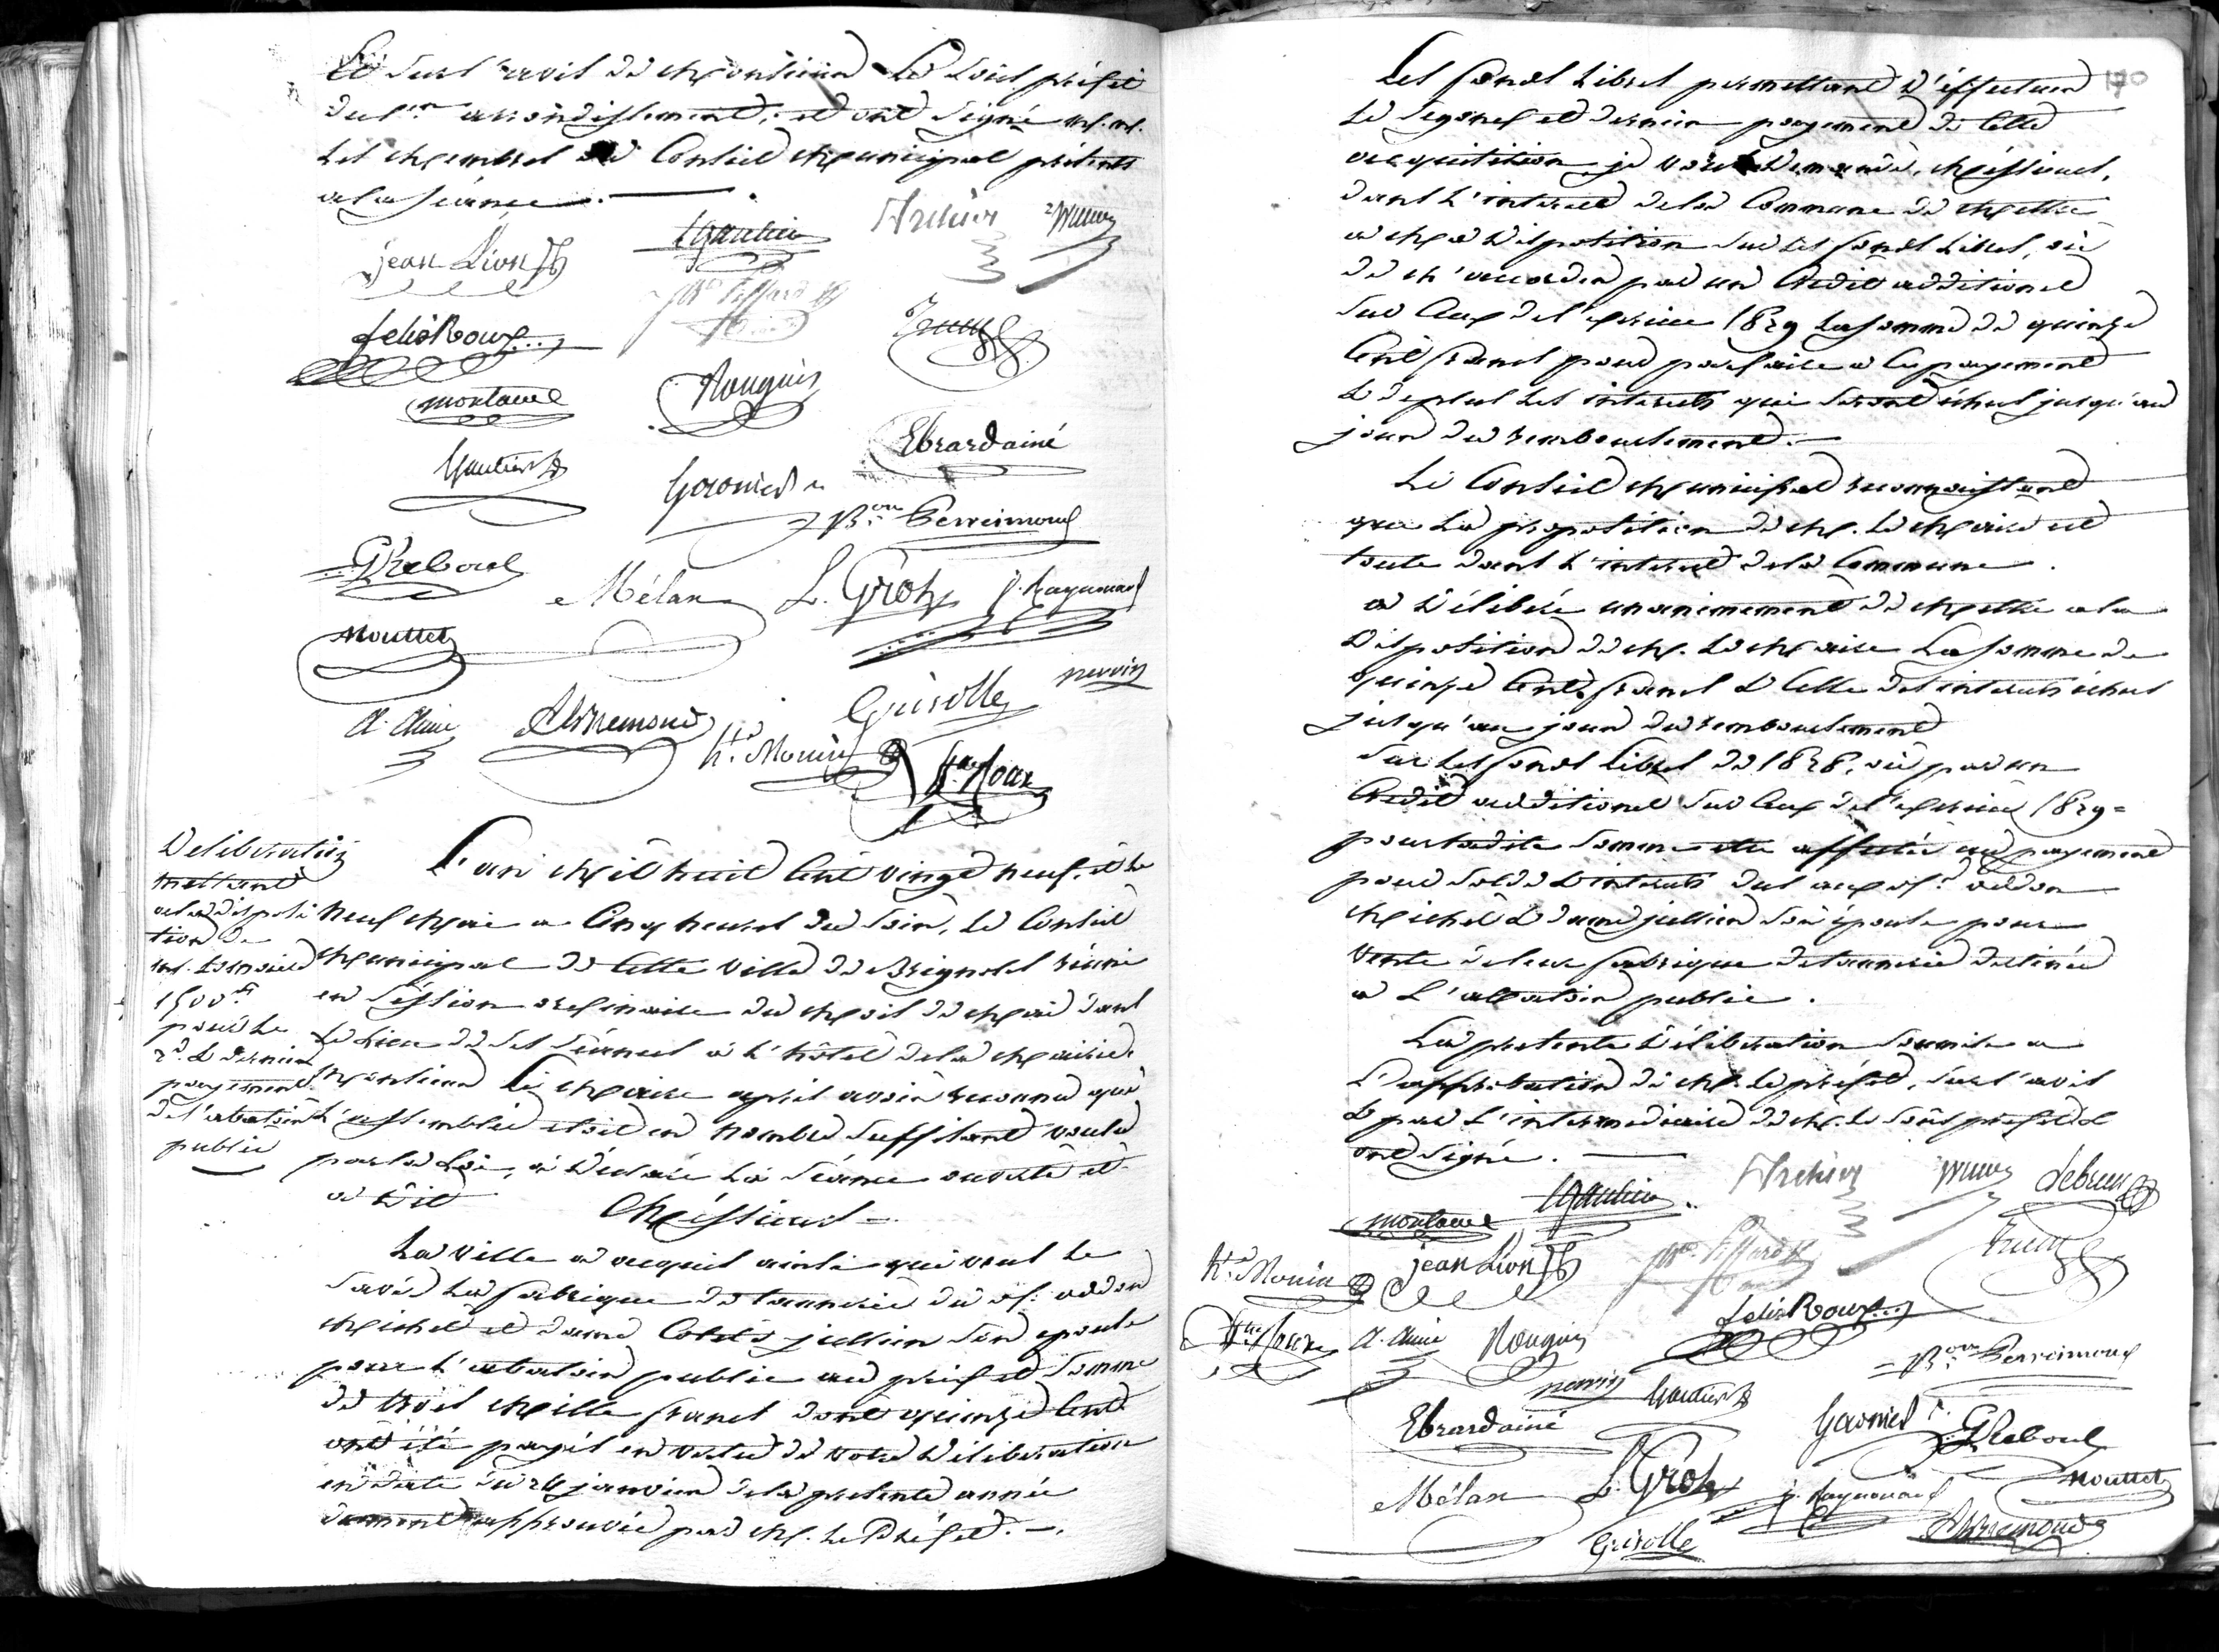 Et sur l'avis de Monsieur Le Sous préfet
du 1er arrondissement, et ont signé M.M.
Les Membres du Conseil Municipal présents
a la séance.
Jean Lion
felix Roux
montaud
Gautier
Rougier
Ebrard ainé
Garonier
Bon Perreimond
G Reboul
Mélan L. Groz J. Raynouard
Mouttet
Grisolle
Hd. Monin
Deliberation
mettant
a la disposi
tion de
M. Le maire
1500 f.
pour le
2d. & dernier
payement
de l'abatoir
public
L'an Mil huit Cent vingt neuf, et le
neuf Mai a Cinq heures du soir, Le Conseil
Municipal de Cette ville de Brignoles réuni
en séssion ordinaire du Mois de Mai dans
Le Lieu de ses séances a L'hôtel de la Mairie.
Monsieur Le Maire après avoir reconnu que
L'assemblée etoit en nombre suffisant voulu
par la Loi, a déclaré La séance ouverte et
a dit
Messieurs
La ville a acquis ainsi que vous le
savés La fabrique de tannerie du sr. addon
Michel et dame jullien son epouse
pour L'abatoir public au prix et Somme
de trois Mille francs dont quinze Cent
ont été payés en vertu de votre Déliberation
en date du 24 janvier de la presente année
dument approuvée par M. Le Préfet.
170
Les fonds Libres permettant d'éffectuer
Le segond et dernier payement de Cette
acquisition je vous Demande, Messieurs,
dans L'interet de la Commune de Mettre
a Ma Disposition sur les fonds Libres, ou
de M'accorder par un Credit additionel
sur Ceux de l'exercice 1829 La somme de quinze
Cent francs pour parfaire a Ce payement
& de plus Les interets qui seront échus jusqu'au
jour du remboursement.
Le Conseil Municipal reconnoissant
que La proposition de M. Le Maire est
toute dans L'interet de la Commune.
a Déliberé unanimement de Mettre a la
Disposition de M. Le Maire La somme de
quinze Cents francs & Celle des interets échus
jusqu'au jour du remboursement
sur Les fonds Libres de 1828, ou par un
Credit additionel sur Ceux de l'exercice 1829
pour Ladite Somme etre affectée au payement
pour solde & interets dus aux sr. addon
Michel & dame jullien son épouse pour
vente de leur fabrique de tannerie destinée
a L'abatoir public.
La presente Déliberation soumise a
L'approbation de M. Le préfet, sur l'avis
& par L'intermediaire de M. Le Sous préfet &
ont signé.
Lebrun
montaud
Hd. Monin Jean Lion
felix Roux
Rougier
Bon Perreimond
Gautier
Ebrard ainé
Garonier
G Reboul
Mélan L. Groz J. Raynouard
Mouttet
Grisolle